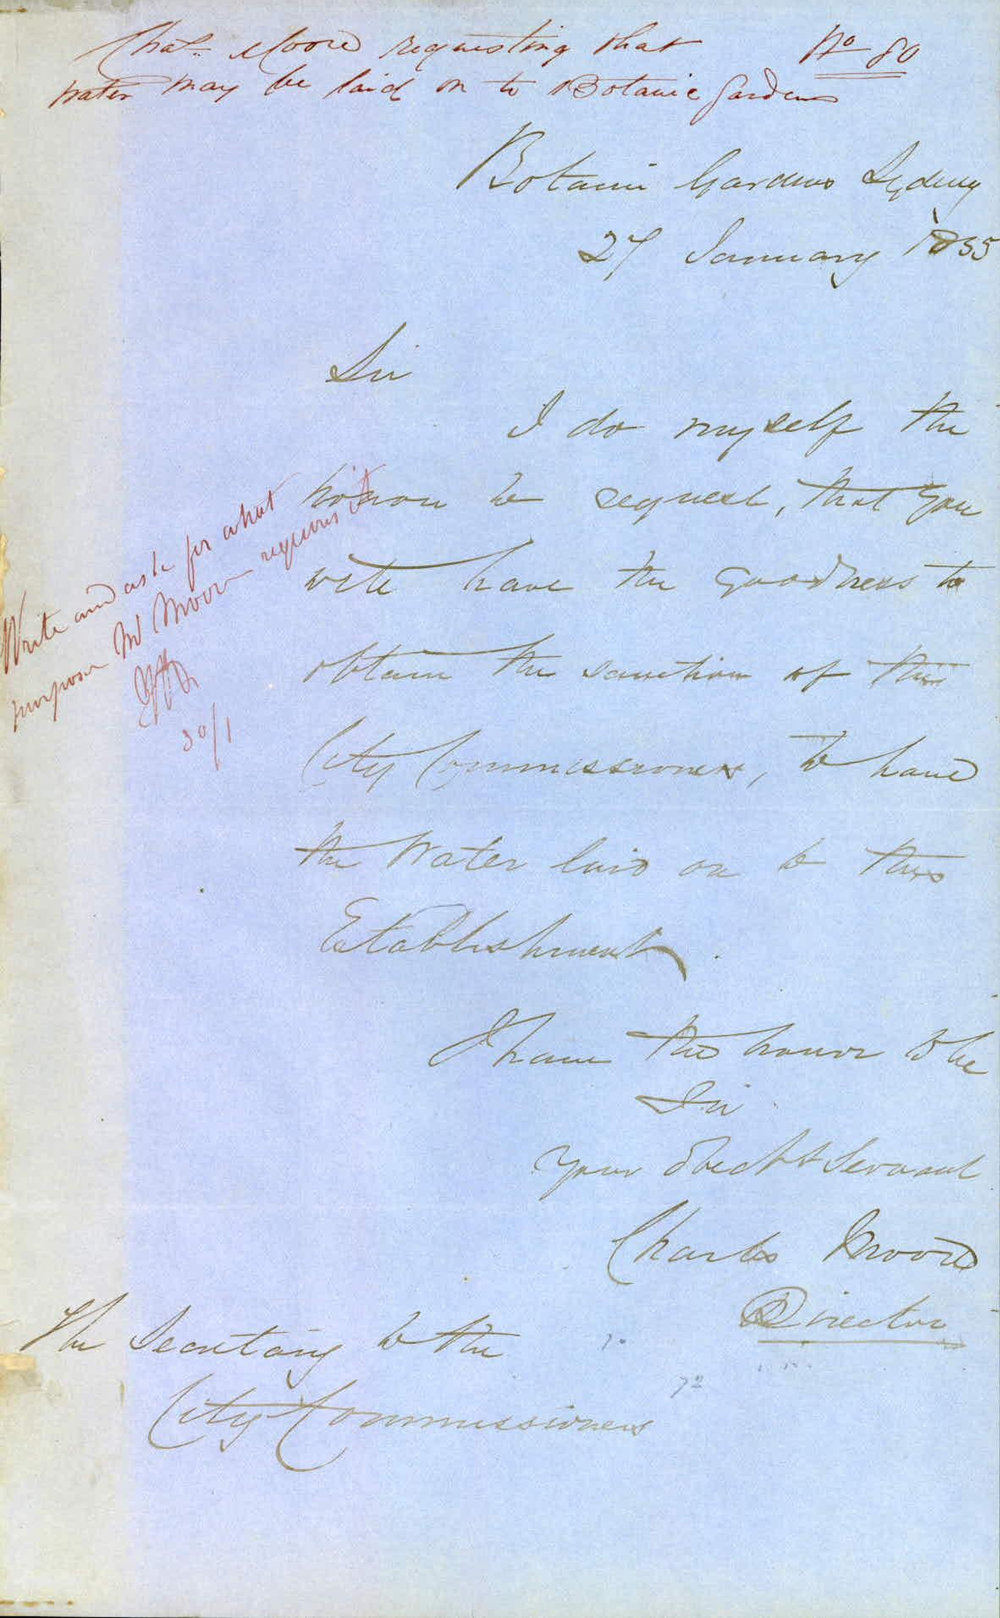 Chas. Moore requesting that No 80
water may be laid on to Botanic Gardens
Botanic Gardens Sydney
27 January 1855
Sir
I do myself the
honour to request, that you
will have the goodness to
obtain the sanction of the
City Commissioners, to have
the Water laid on to this
Establishment.
Write and ask for what
purpose Mr Moore requires it
30/1
I have the honor to be
Sir
Your Obedt Servant
Charles Moore
Director
The Secretary to the
City Commissioners
72